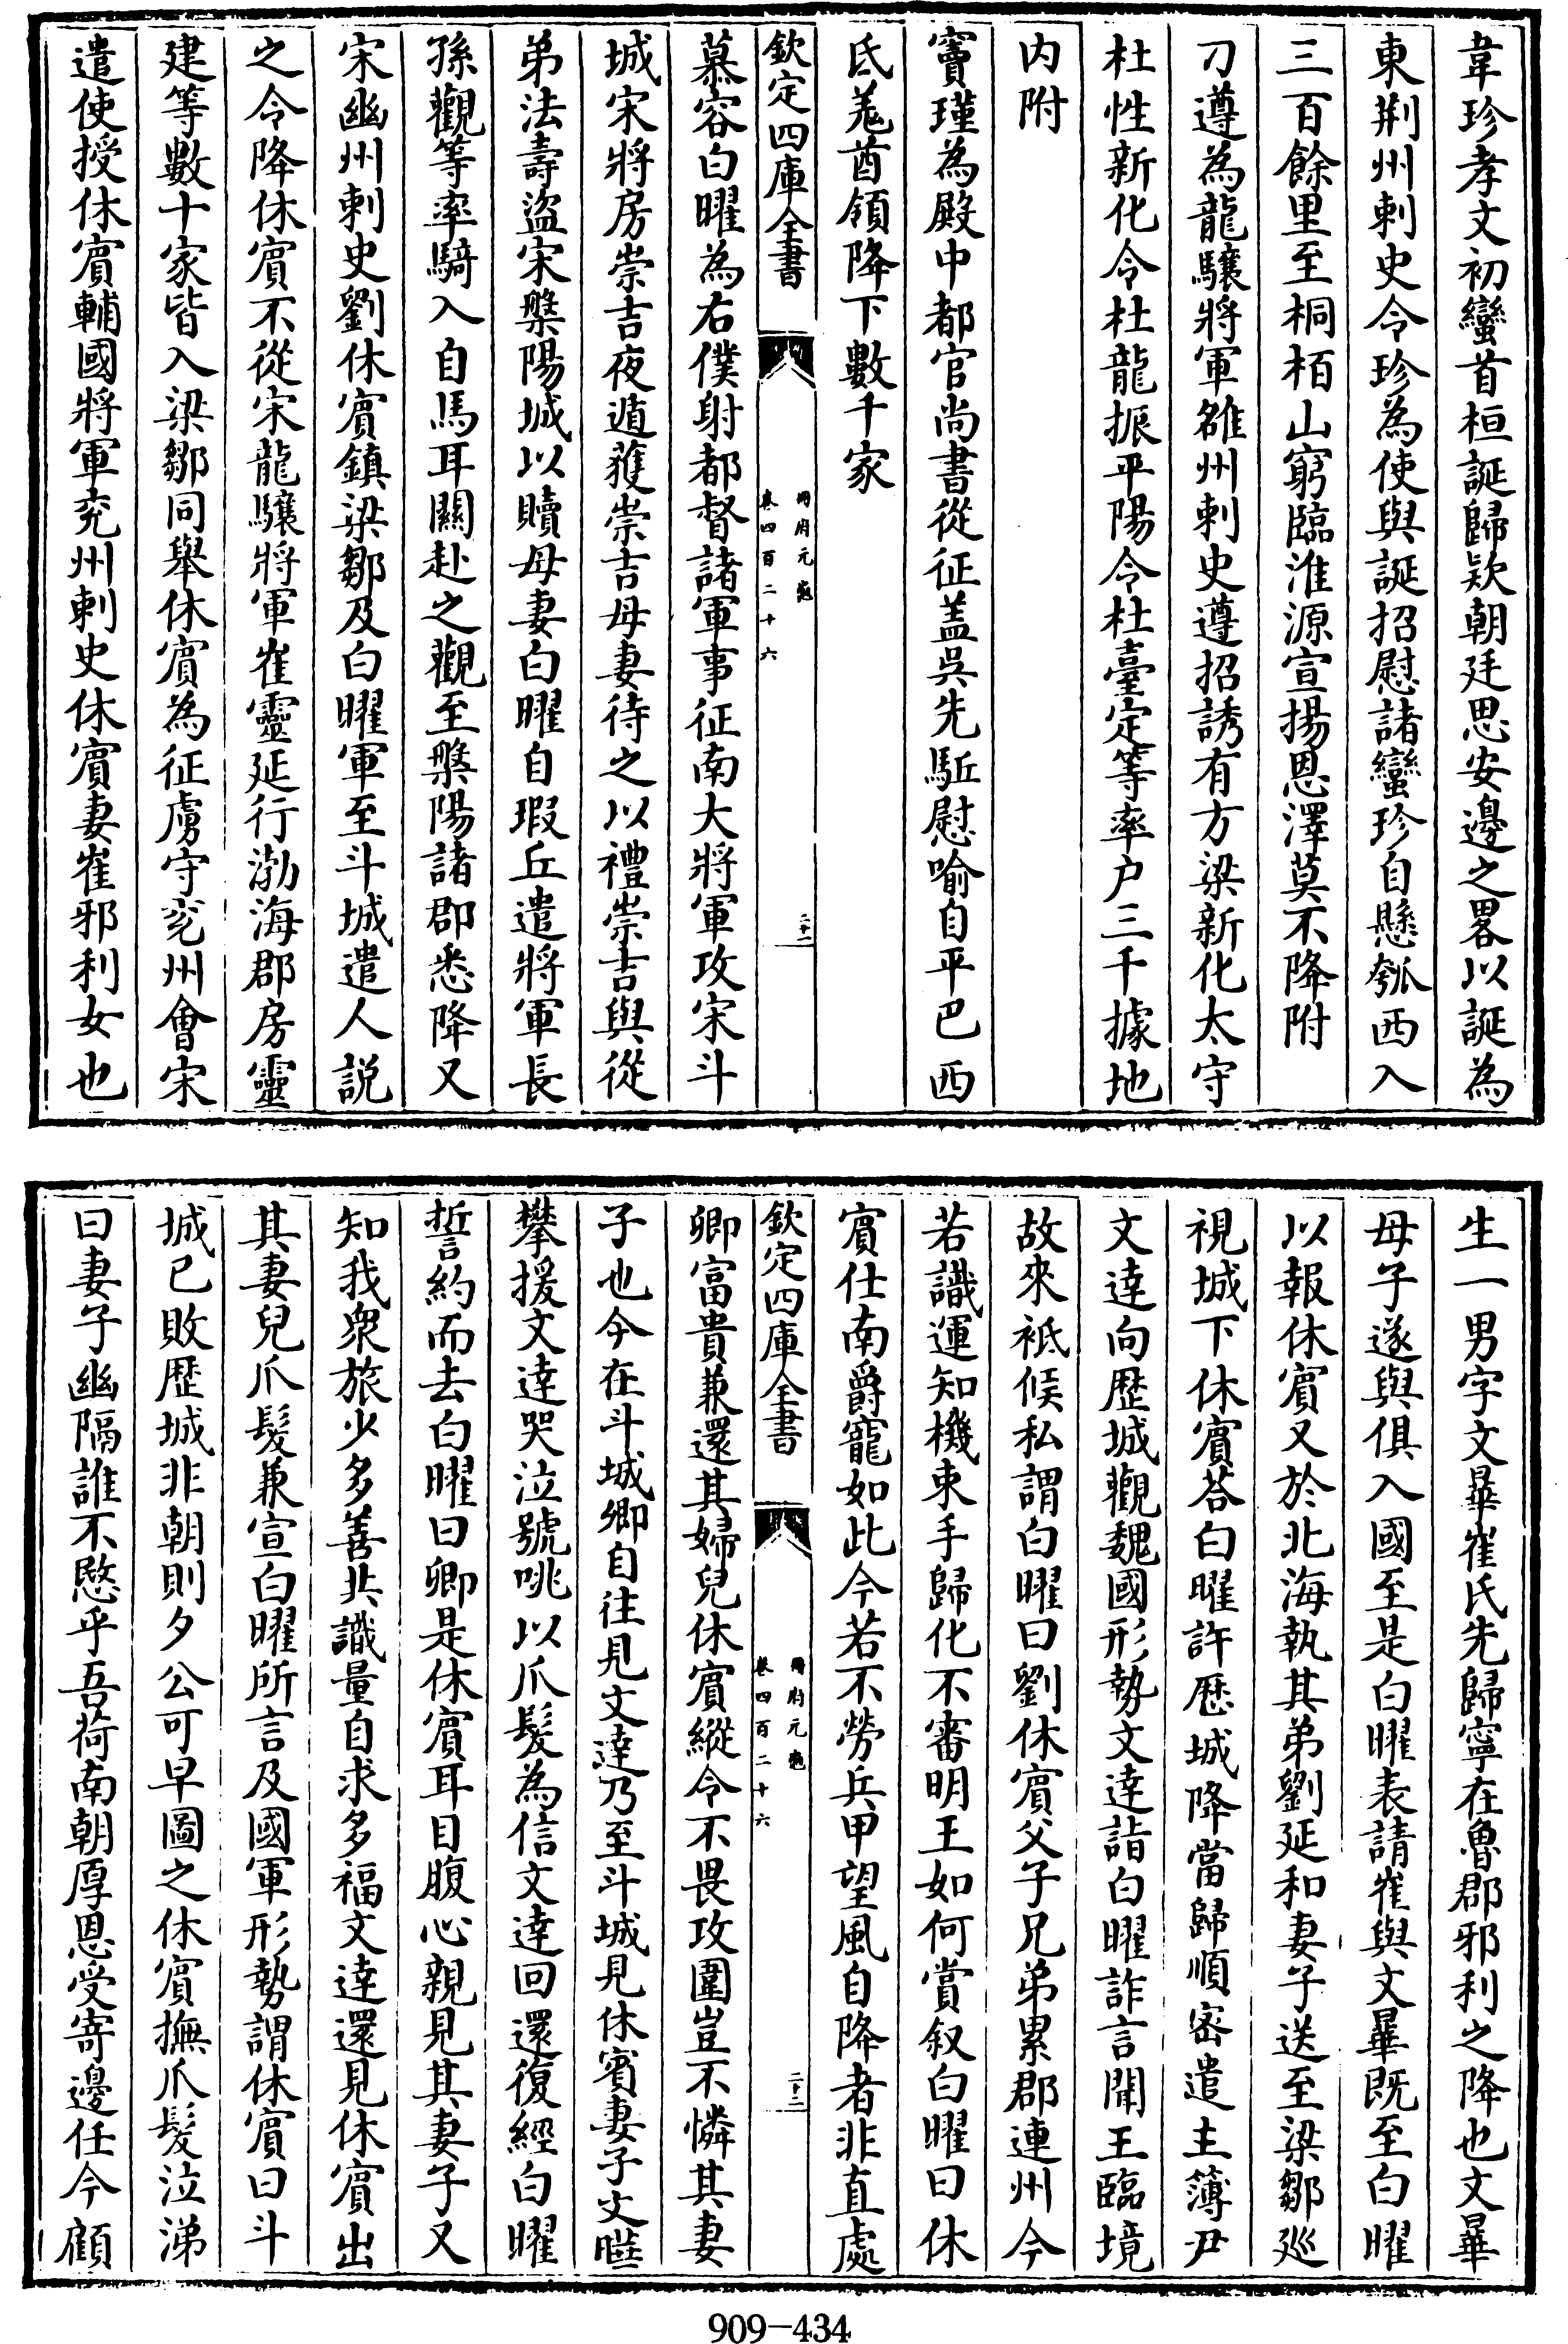 韋珍孝文初蠻首桓誕歸欵朝廷思安邊之畧以誕為
東荆州刺史令珍為使與誕招慰諸蠻珍自懸瓠西入
三百餘里至桐栢山窮臨淮源宣揚恩澤莫不降附
刁遵為龍驤將軍雒州刺史遵招誘有方梁新化太守
杜性新化令杜龍振平陽令杜臺定等率户三千據地
内附
竇瑾為殿中都官尚書從征盖吳先駈慰喻自平巴西
氐羌酋領降下數千家
欽定四庫全書
冊府元龜
卷四百二十六
二十一
慕容白曜為右僕射都督諸軍事征南大將軍攻宋斗
城宋將房崇吉夜遁獲崇吉母妻待之以禮崇吉與從
弟法壽盜宋槃陽城以贖母妻白曜自瑕丘遣將軍長
孫觀等率騎入自馬耳關赴之觀至槃陽諸郡悉降又
宋幽州刺史劉休賓鎮梁鄒及白曜軍至斗城遣人説
之令降休賓不從宋龍驤將軍崔靈延行渤海郡房靈
建等數十家皆入梁鄒同舉休賓為征虜守兖州會宋
遣使授休賓輔國將軍兖州刺史休賓妻崔邪利女也
生一男字文曅崔氏先歸寧在魯郡邪利之降也文曅
母子遂與俱入國至是白曜表請崔與文曅既至白曜
以報休賓又於北海執其弟劉延和妻子送至梁鄒廵
視城下休賓荅白曜許歴城降當歸順宻遣主簿尹
文達向歴城觀魏國形勢文達詣白曜詐言聞王臨境
故來祗候私謂白曜曰劉休賓父子兄弟累郡連州今
若識運知機束手歸化不審明王如何賞叙白曜曰休
賓仕南爵寵如此今若不勞兵甲望風自降者非直處
欽定四庫全書
冊府元龜
卷四百二十六
二十二
卿富貴兼還其婦兒休賓縱令不畏攻圍豈不憐其妻
子也今在斗城卿自往見文達乃至斗城見休賓妻子文曅
攀援文達哭泣號咷以爪髮為信文達回還復經白曜
誓約而去白曜曰卿是休賓耳目腹心親見其妻子又
知我衆旅少多善共識量自求多福文達還見休賓出
其妻兒爪髮兼宣白曜所言及國軍形勢謂休賓曰斗
城已敗歴城非朝則夕公可早圖之休賓撫爪髮泣涕
曰妻子幽隔誰不愍乎吾荷南朝厚恩受寄邊任今顧
909-434